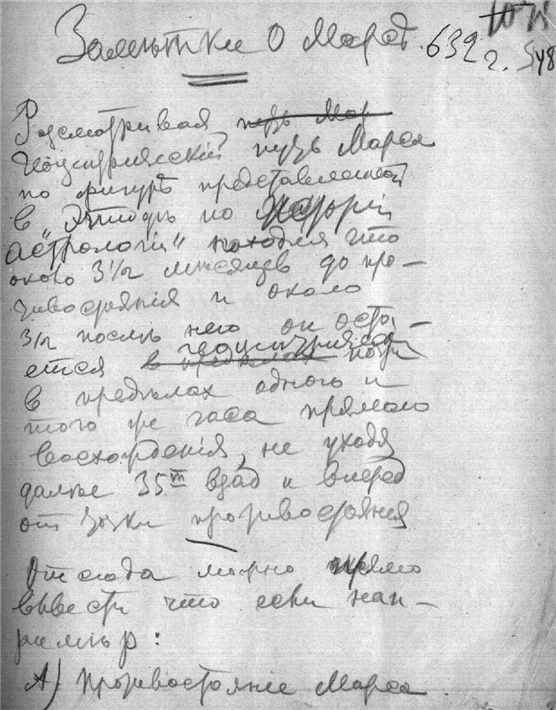 Заметки о Марсе. 632 г.
548
Разсматривая путь Мар
геоцентрический путь Марса
по фигурѣ представленной
в „Этюдѣ по Исторіи
Астрологіи“ находим что
около 3½ мѣсяцев до про–
тивостоянія и около
3½ послѣ него он оста–
ется в пределах геоцентрически почти
в предѣлах одного и
того же часа прямого
восхожденія, не уходя
далѣе 35ᵐ взад и вперед
от точки противостоянія
Отсюда можно прямо
вывести что если нап–
римѣр:
А) Противостояніе Марса